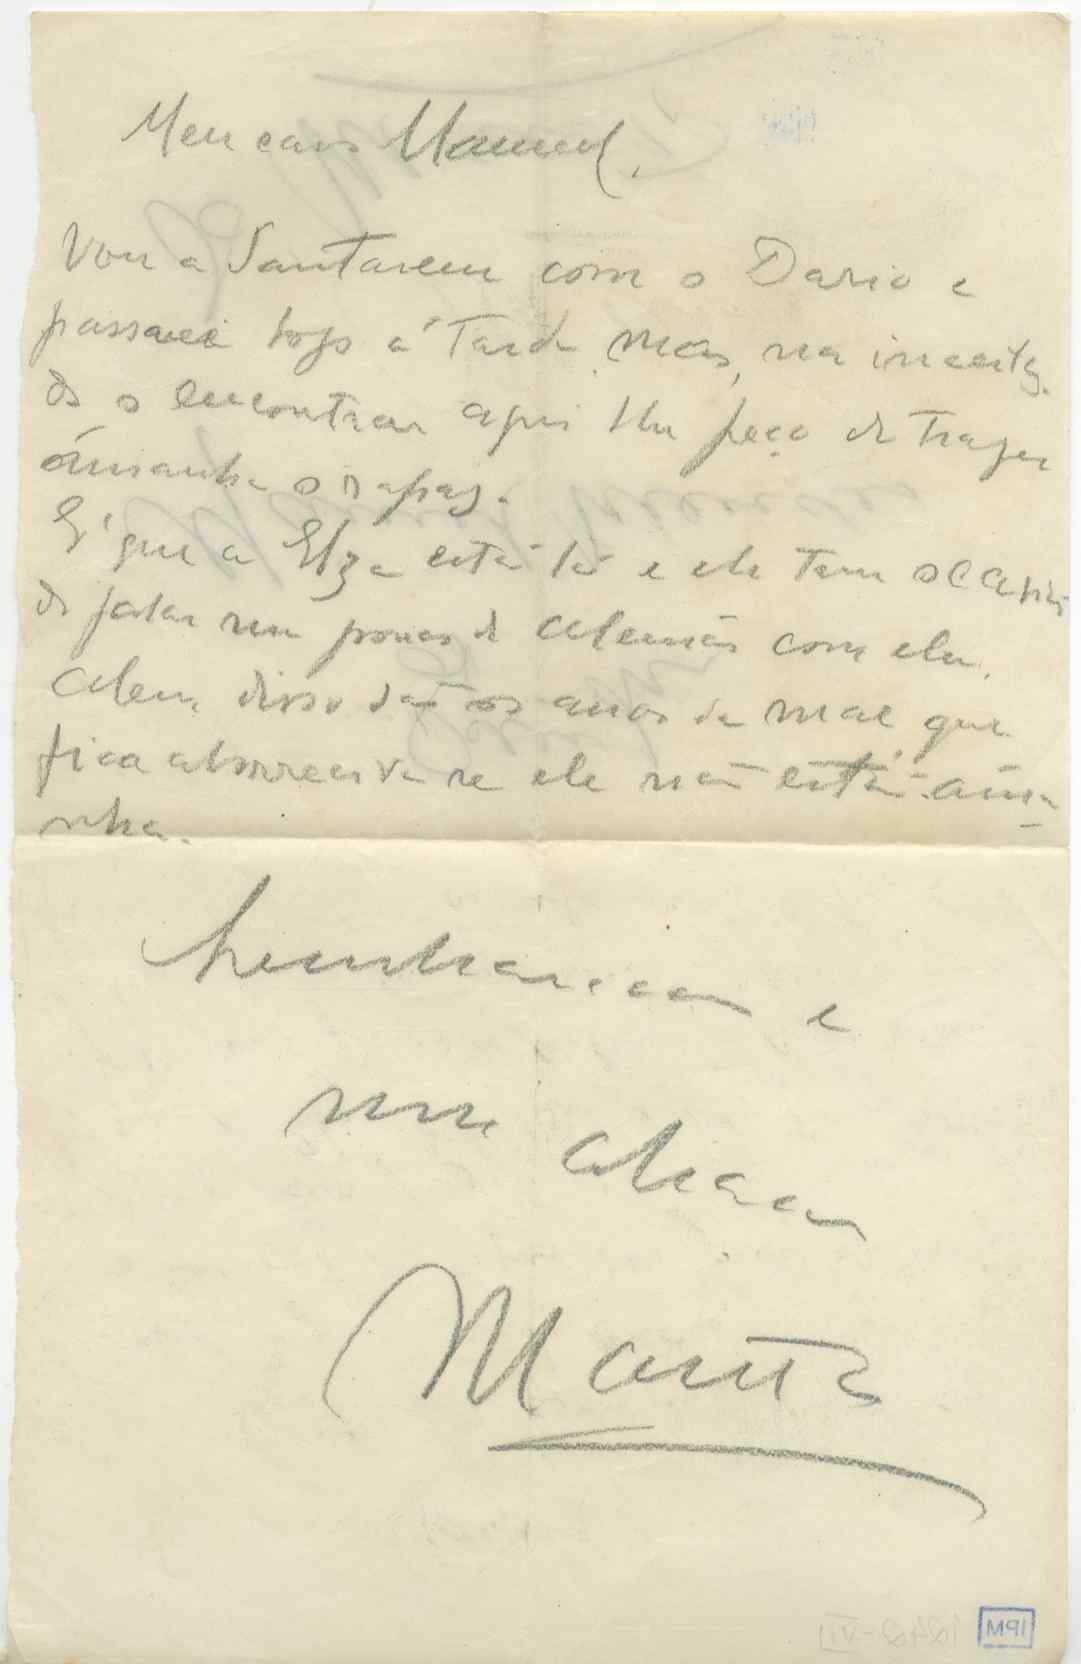 Meu caro Manuel.
Vou a Santarem com o Dario e
passarei logo á tarde mas, na incertez.
de o encontrar aqui lhe peço de trazer
ámanha o rapaz.
E' que a Elza está lá e ele tem occasião
de falar um pouco de alemão com ela.
Alem disso são os anos da mãe que
fica aborrecida se ele não está áma
nha.
Lembranças e
um abraço
IPM